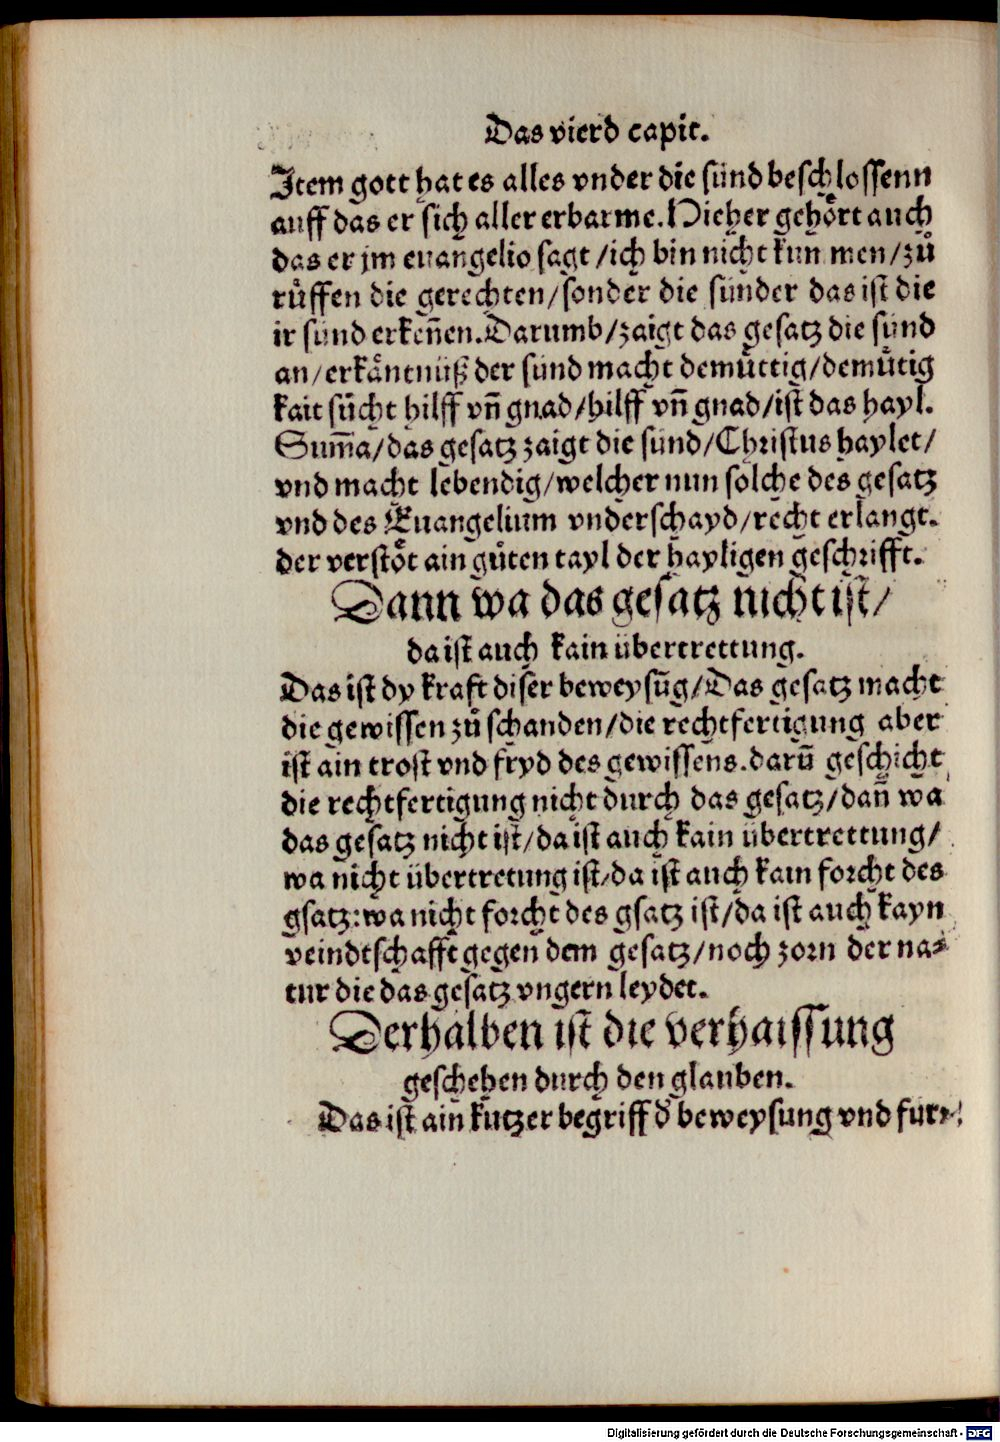 Das vierd capit.
Item gott hat es alles vnder die sünd beschlossenn
auff das er sich aller erbarme. Hieher gehört auch
das er jm euangelio sagt / ich bin nicht kun men / zů
růffen die gerechten / sonder die sünder das ist die
ir sünd erkeñen. Darumb / zaigt das gesatz die sünd
an / erkäntnüß der sünd macht demůttig / demůtig
kait sůcht hilff vñ gnad / hilff vñ gnad / ist das hayl.
Sum̃a / das gesatz zaigt die sünd / Christus haylet /
vnd macht lebendig / welcher nun solche des gesatz
vnd des Euangelium vnderschayd / recht erlangt.
der verstöt ain gůten tayl der hayligen geschrifft.
Dann wa das gesatz nicht ist /
da ist auch kain übertrettung.
Das ist dy kraft diser beweysũg / Das gesatz macht
die gewissen zů schanden / die rechtfertigung aber
ist ain trost vnd fryd des gewissens. darũ geschicht
die rechtfertigung nicht durch das gesatz / dañ wa
das gesatz nicht ist / da ist auch kain übertrettung /
wa nicht übertretung ist / da ist auch kain forcht des
gsatz: wa nicht forcht des gsatz ist / da ist auch kayn
veindtschafft gegen dem gesatz / noch zorn der na⸗
tur die das gesatz vngern leydet.
Derhalben ist die verhaissung
geschehen durch den glauben.
Das ist ain kutzer begriff d̓ beweysung vnd für⸗
Digitalisierung gefördert durch die Deutsche Forschungsgemeinschaft - DFG